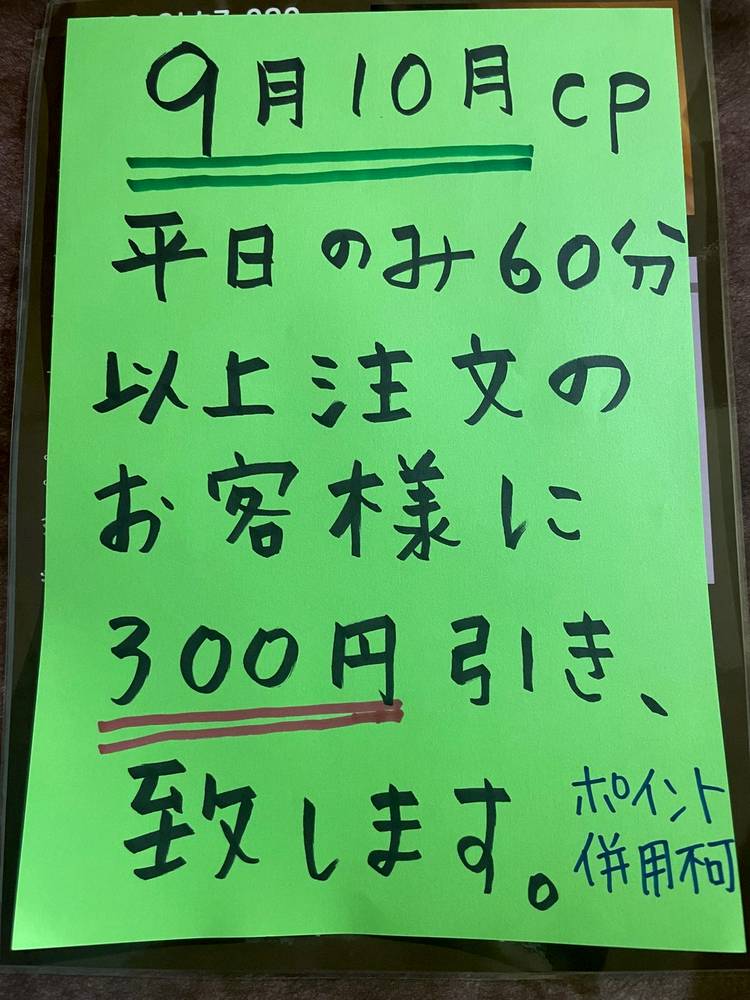 9月10月CP
平日のみ60分
以上注文の
お客様に
300円引き、
致します。
ポイント
併用不可